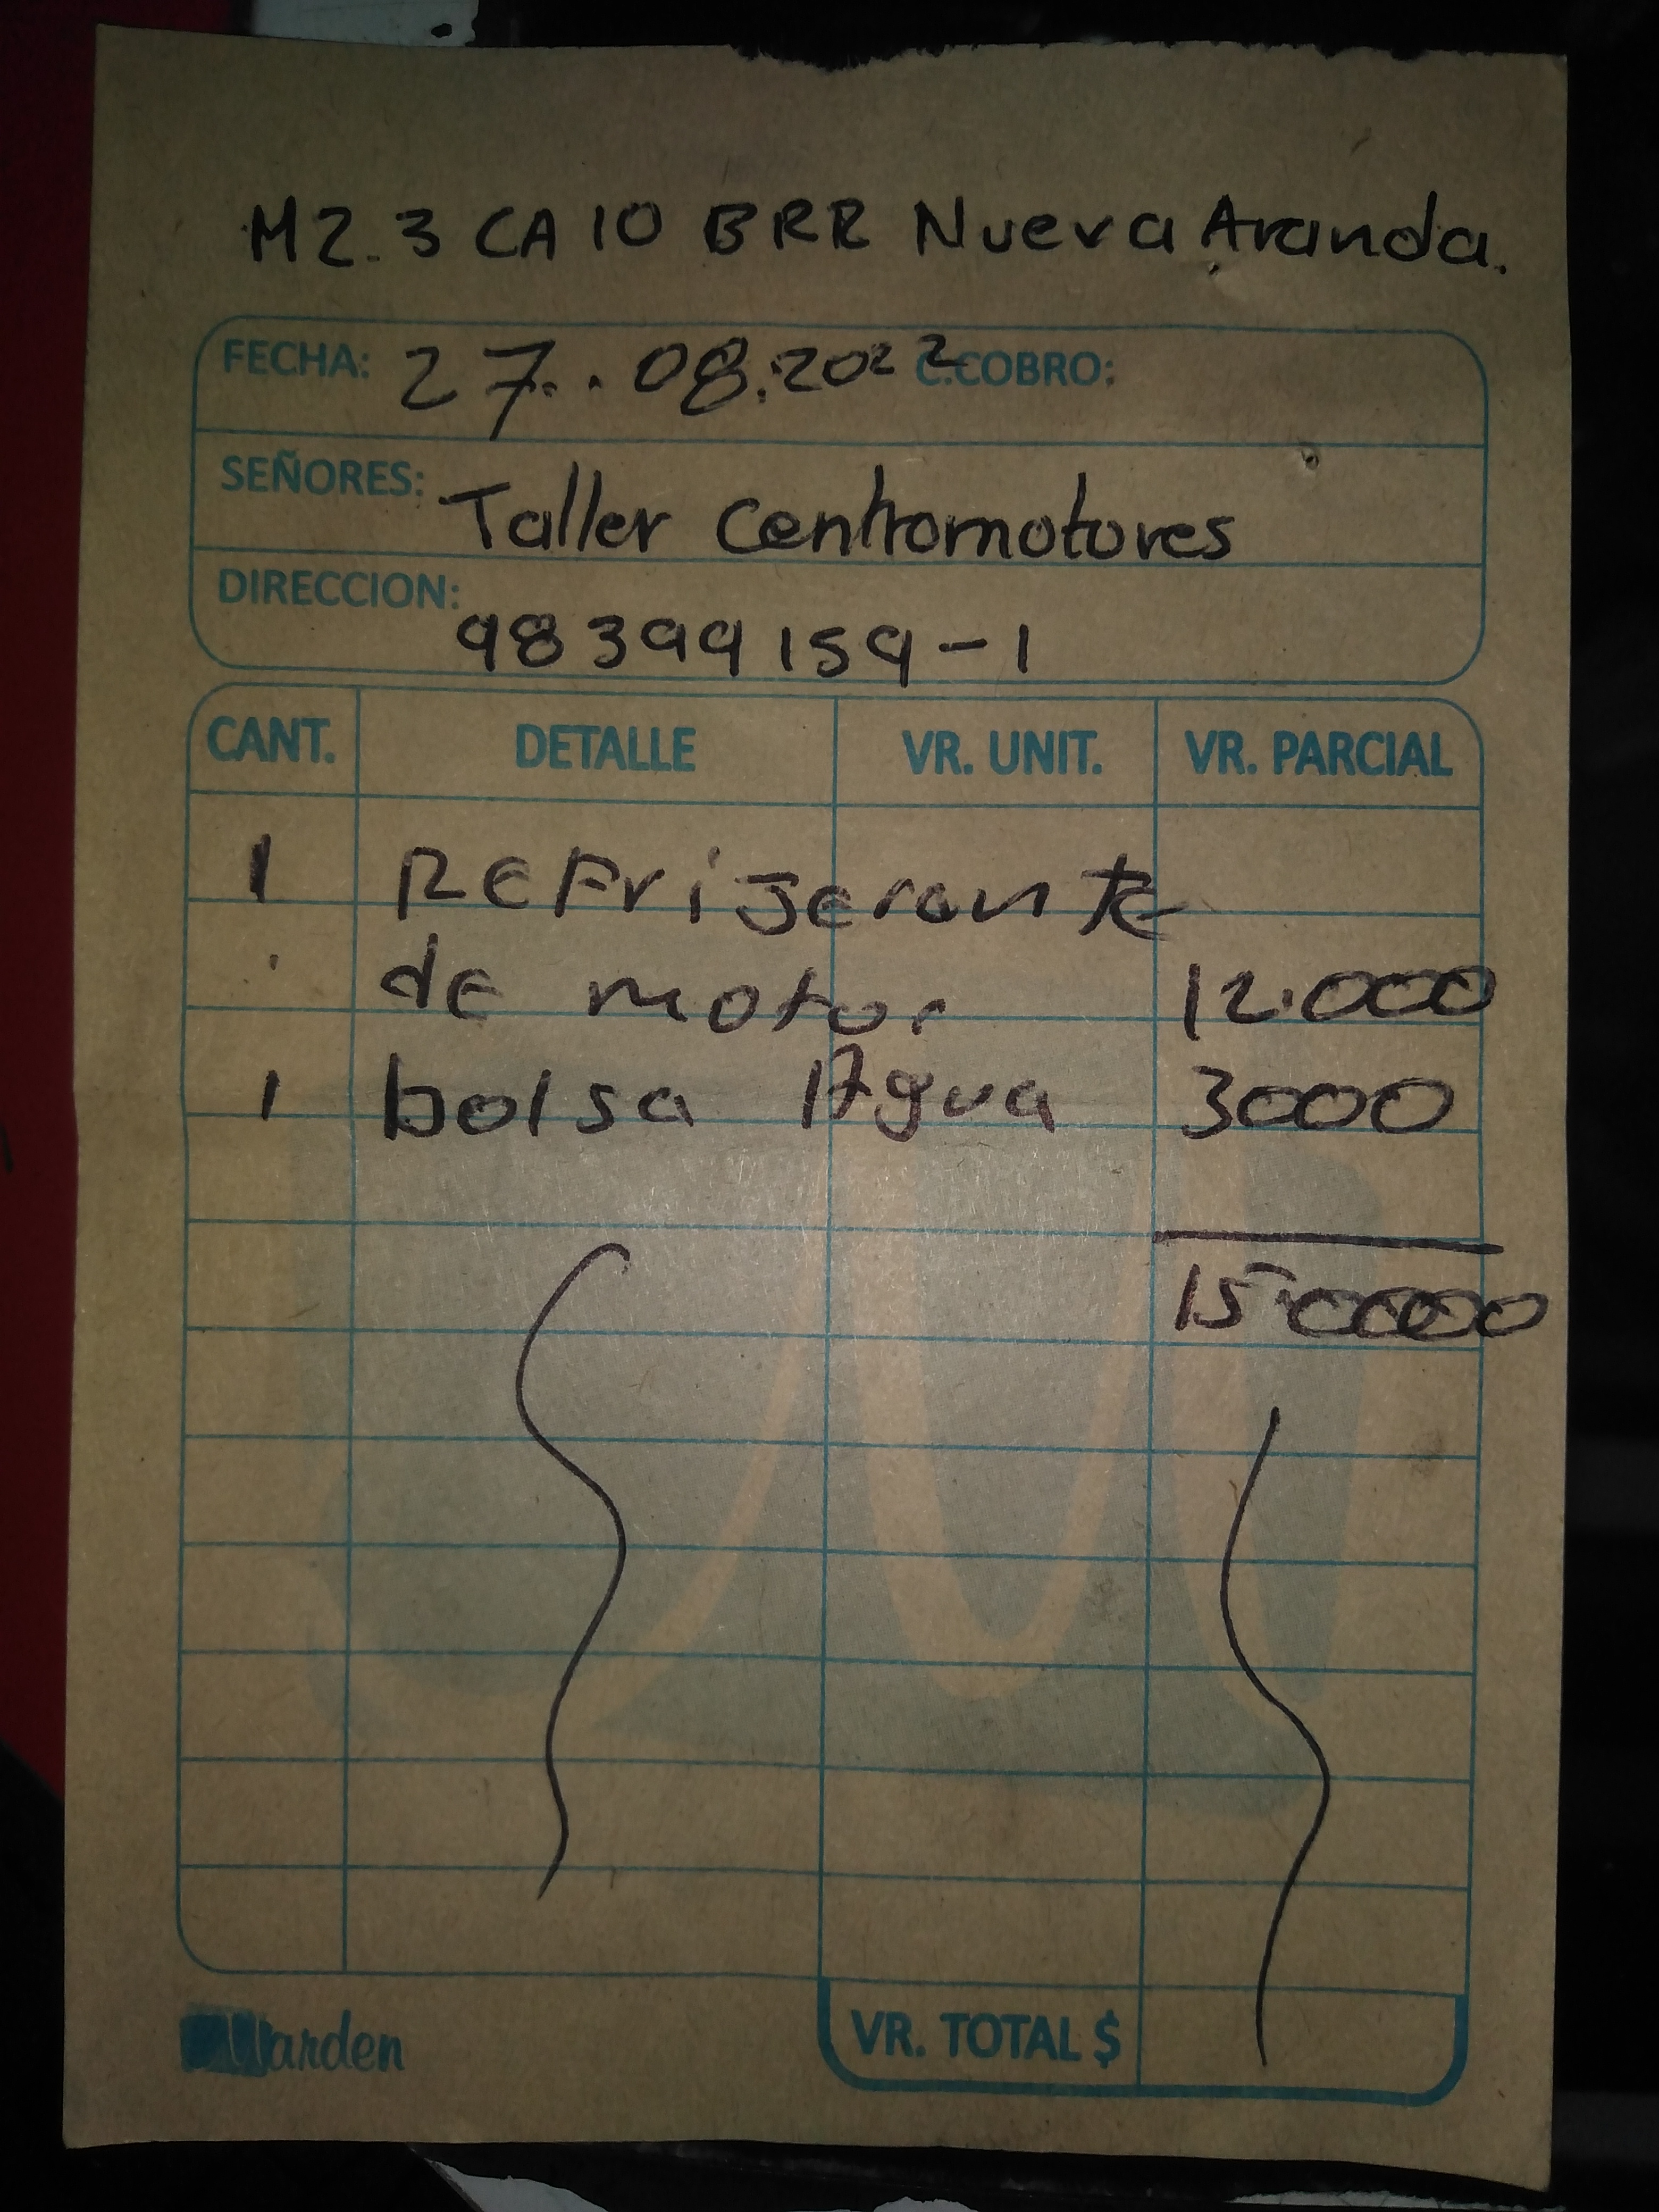 M2.3 CA 10 BRR Nueva Aranda.
FECHA: 27..08.2022 C.COBRO:
SEÑORES: Taller Centromotores
DIRECCION: 98399159-1
CANT. DETALLE VR. UNIT. VR. PARCIAL
1 Refrijerante
de motor 12.000
1 bolsa Agua 3000
VR. TOTAL $